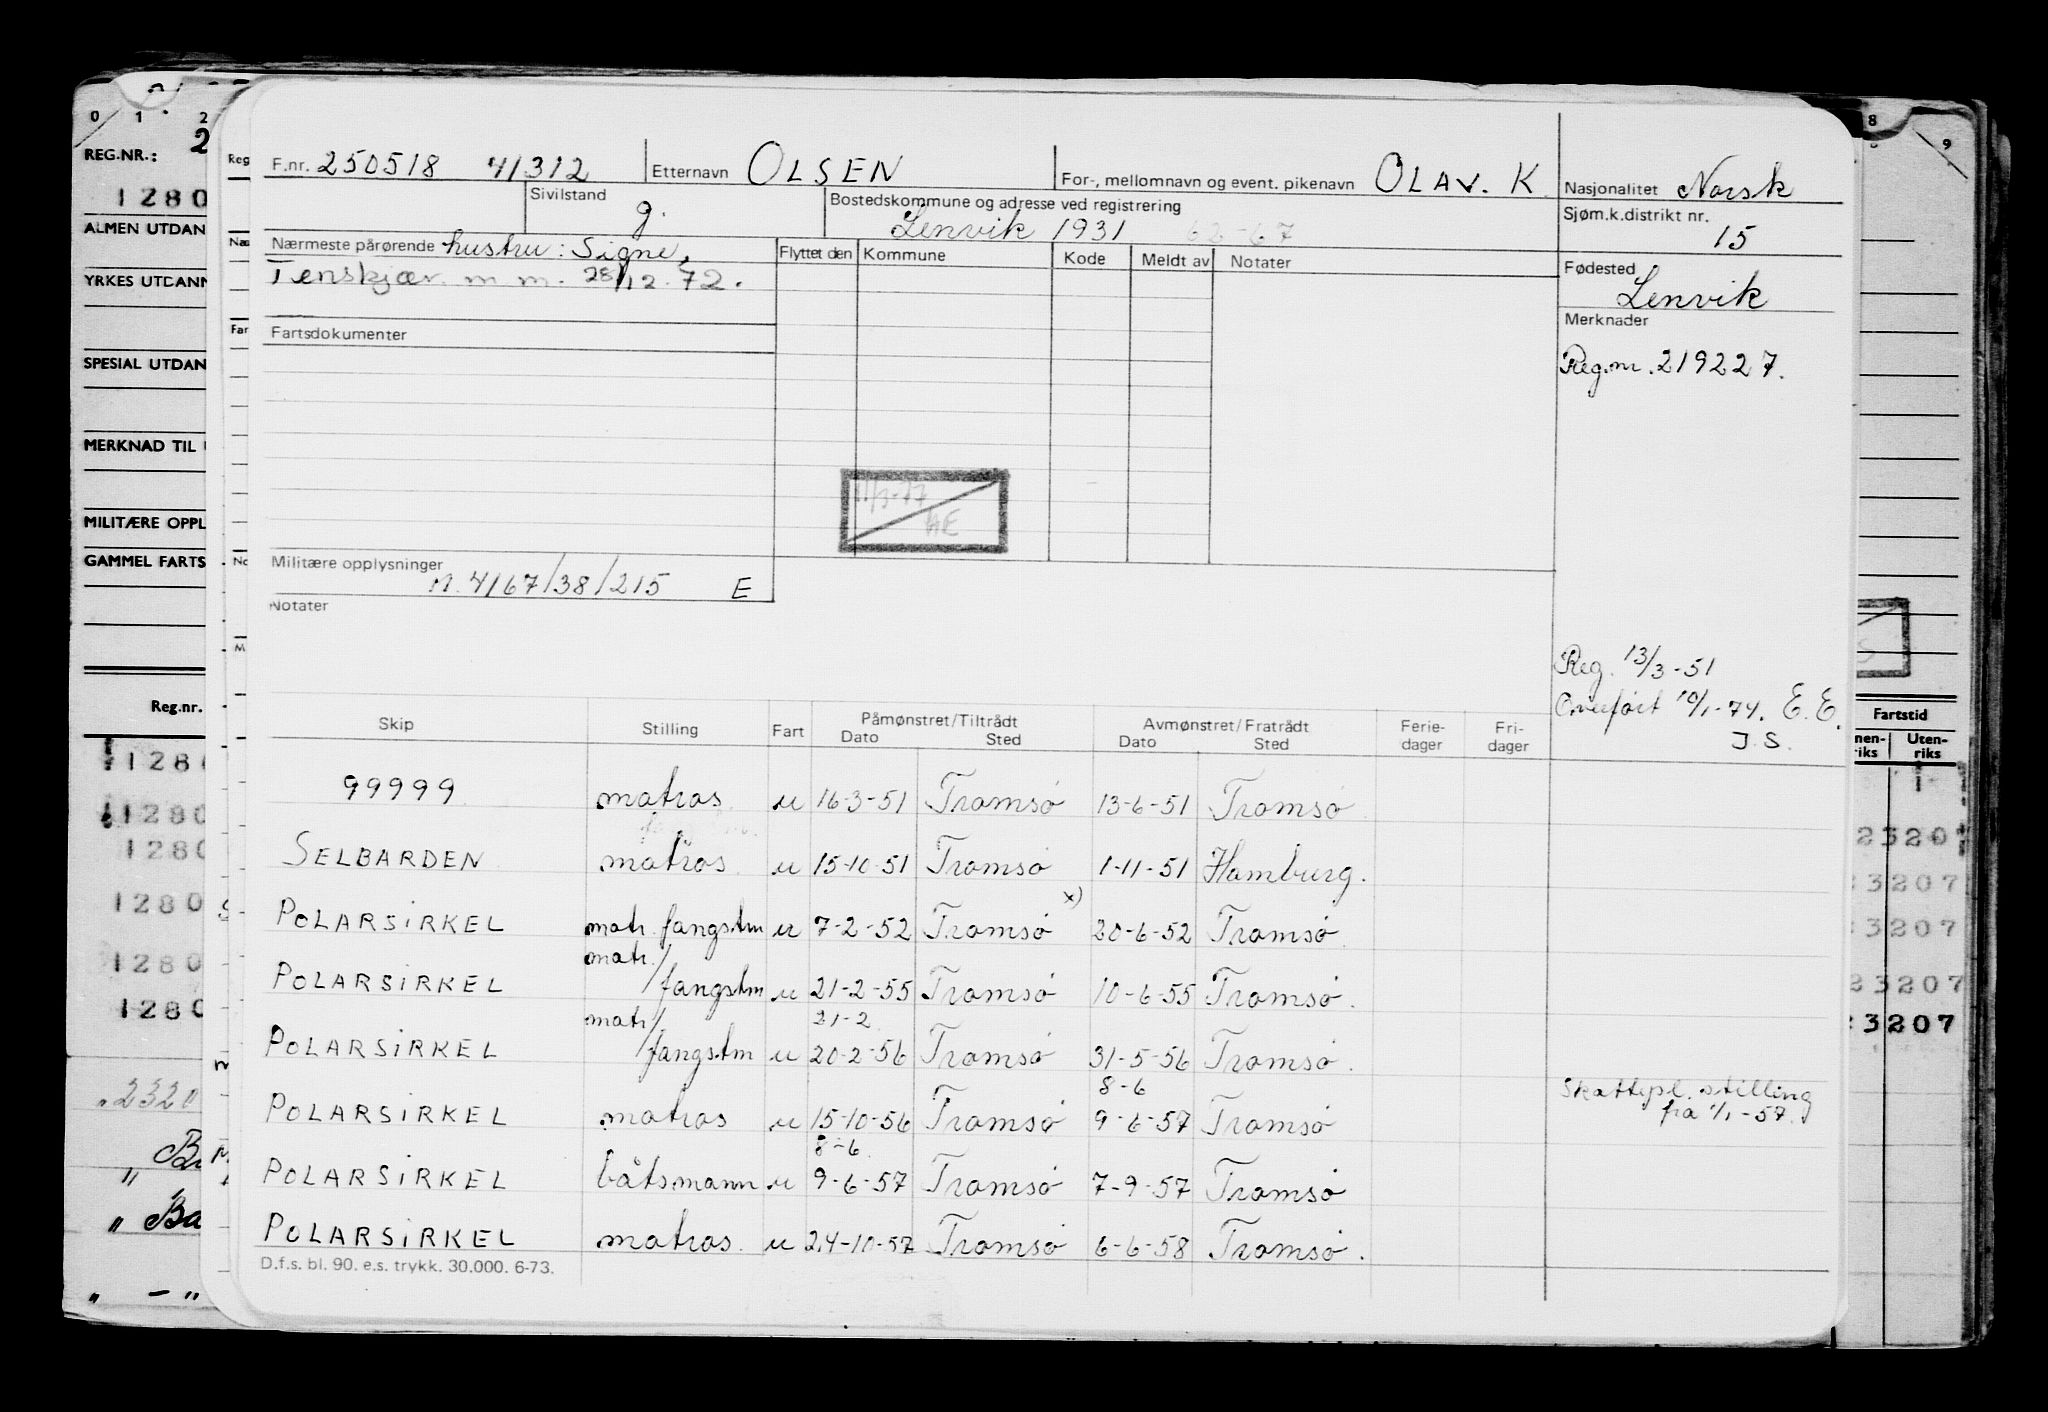 F.nr. 250518 41312 Etternavn OLSEN For-, mellomnavn og event. pikenavn OLAV. K Nasjonalitet Norsk
Sivilstand g. Bostedskommune og adresse ved registrering Lenvik 1931 62-67 Sjøm.k.distrikt nr. 15
Nærmeste pårørende hustru: Signe, Flyttet den Kommune Kode Meldt av Notater Fødested Lenvik
Tenskjær. m m. 28/12.72.
Fartsdokumenter Merknader
Reg.nr. 219227.
11/3-77
AE
Militære opplysninger n. 4/67/38/215 E
Notater
Reg. 13/3-51
Overført 10/1-74. E.E.
J.S.
Skip Stilling Fart Påmønstret/Tiltrådt Avmønstret/Fratrådt Ferie- Fri-
Dato Sted Dato Sted dager dager
99999 matros u 16-3-51 Tromsø 13-6-51 Tromsø
SELBARDEN matros u 15-10-51 Tromsø 1-11-51 Hamburg.
x)
POLARSIRKEL matr. fangstm u 7-2-52 Tromsø 20-6-52 Tromsø.
POLARSIRKEL matr./fangstm u 21-2-55 Tromsø 10-6-55 Tromsø.
21-2
POLARSIRKEL matr/fangstm u 20-2-56 Tromsø 31-5-56 Tromsø.
8-6
POLARSIRKEL matros u 15-10-56 Tromsø 9-6-57 Tromsø Skattepl. stilling
fra 1/1-57.
8-6.
POLARSIRKEL båtsmann u 9-6-57 Tromsø 7-9-57 Tromsø
POLARSIRKEL matros. u 24-10-57 Tromsø 6-6-58 Tromsø.
D.f.s. bl. 90. e.s. trykk. 30.000. 6-73.
0 1 2
REG.NR.: 2
1280
ALMEN UTDAN
YRKES UTDANN
SPESIAL UTDAN
MERKNAD TIL
MILITÆRE OPPL
GAMMEL FARTS
Reg.nr.
128
1280
1280
1280
1280
1280
2320
8 9
Fartstid
nen-riks Uten-riks
23207
23207
3207
23207
3207